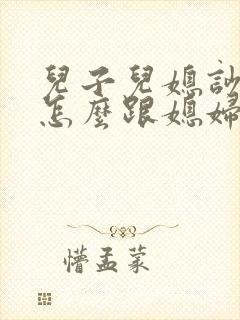 兒子兒媳
怎麼跟媳婦
懵孟蒙